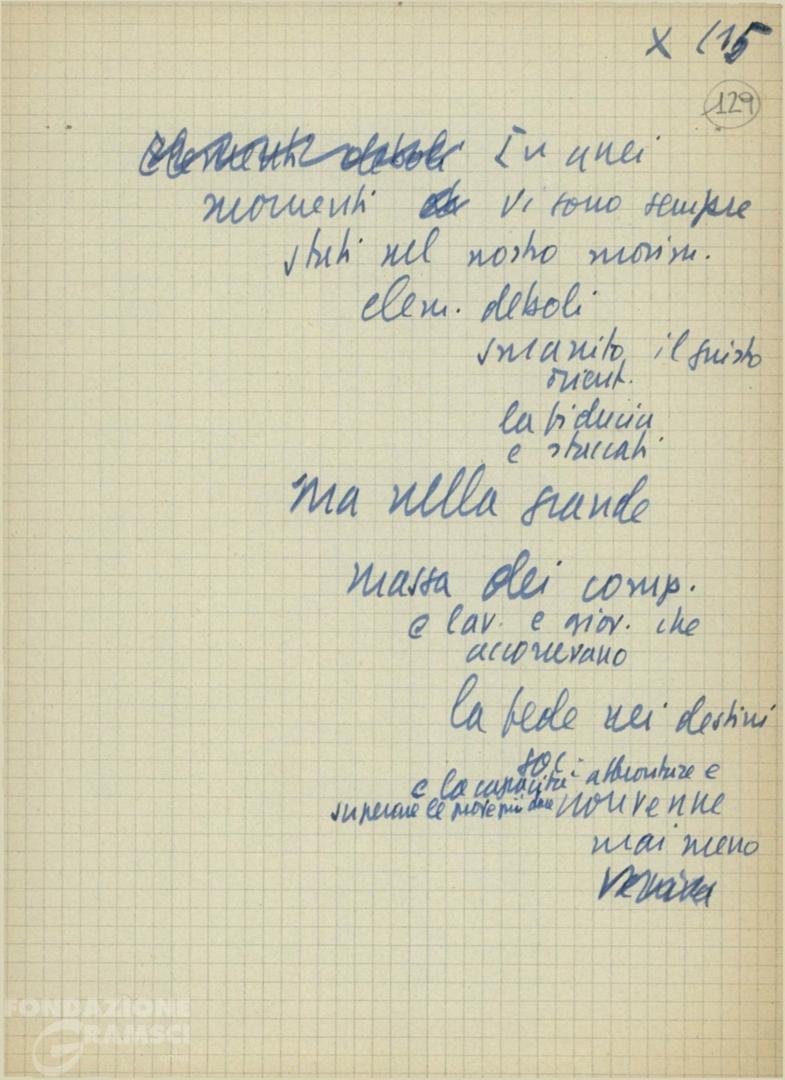 X (15
129
elementi deboli In quei
momenti vi sono sempre
stati nel nostro movim.
elem. deboli
smarrito il giusto
orient.
la fiducia
e staccati
ma nella grande
massa dei comp.
e lav. e giov. che
accorrevano
la fede nei destini
soc.
e la capacità affrontare e
superare le prove più dure non venne
mai meno
FONDAZIONE
GRAMSCI